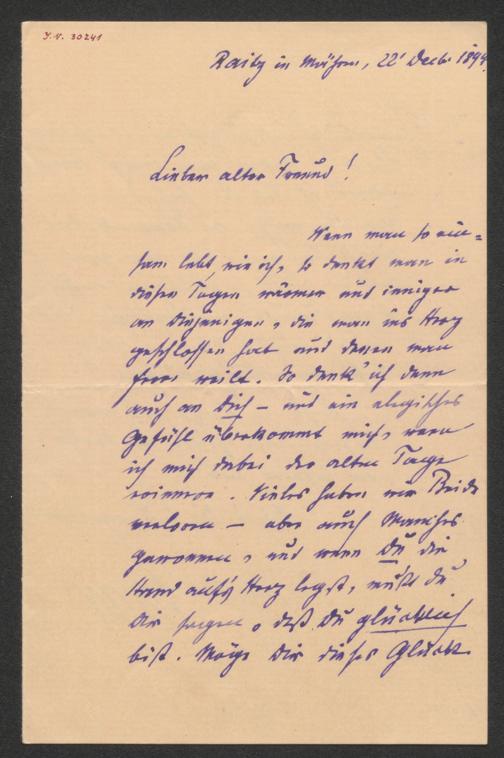 J.N. 30241
Raitz in Mähren, 22' Decb. 1894.
Lieber alter Freund!
Wenn man so ein=
sam lebt, wie ich, so denkt man in
diesen Tagen wärmer und inniger
an Diejenigen, die man ins Herz
geschlossen hat und denen man
fern weilt. So denk' ich denn
auch an Dich – und ein elegisches
Gefühl überkommt mich, wenn
ich mich dabei der alten Tage
erinnere. Vieles haben wir Beide
verloren – aber auch Manches
gewonnen, und wenn Du die
Hand auf's Herz legst, mußt du
Dir sagen, daß Du glücklich
bist. Möge Dir dieses Glück